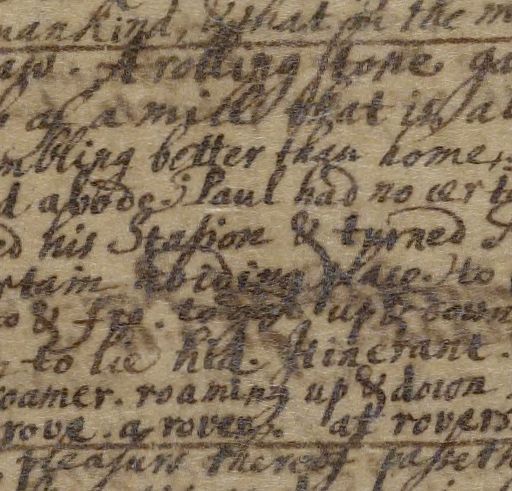 mankind, & that of the m
A rolling stone ga
of a mill that is al
mbling better than home,
d abode. Paul had no cert
ed his Station & turned
rtain abiding place. to
to & fro. up & down
to lie hid. Itinerant.
roamer. roaming up & down
rove. a rover. at rovers
pleasure thereof passeth